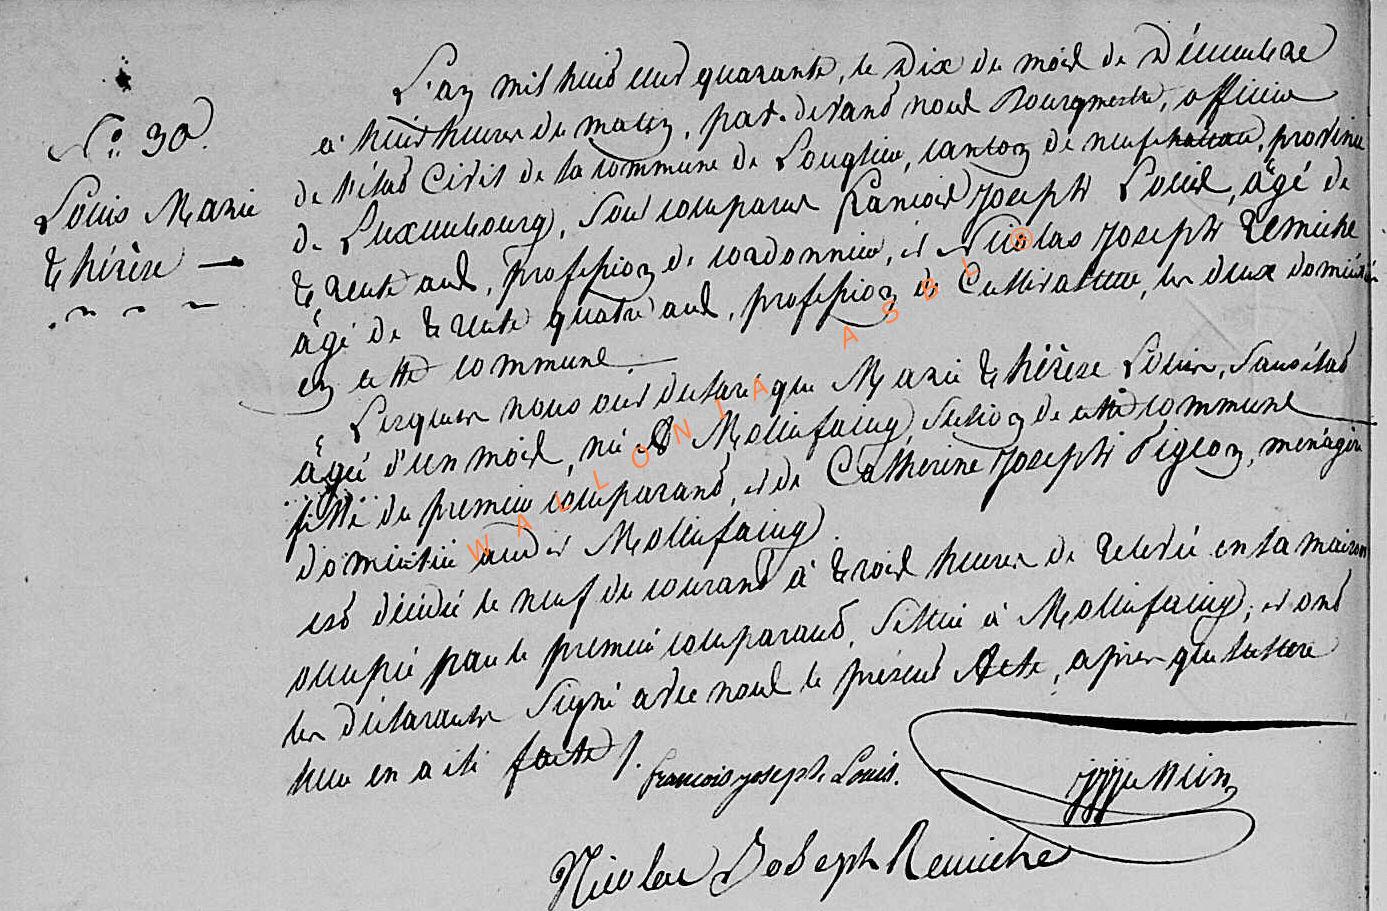 N.o 30.
Louis Marie
thérèse —
L'an mil huit cent quarante, le Dix du mois de Décembre
à huit heures du matin, par-devant nous Bourgmestre, officier
de l'état Civil de la commune de Longlier, canton de neufchateau, province
de Luxembourg, sont comparus francois Joseph Louis, âgé de
trente ans, profession de cordonnier, et Nicolas Joseph Remiche
âgé de trente quatre ans, profession de Cultivateur, les deux domiciliés
en cette commune. —
Lesquels nous ont déclaré que Marie thérèse Louis, sans état
âgée d'un mois, née à Molinfaing, section de cette commune
fille du premier comparant, et de Catherine Joseph Pigeon, ménagère
domiciliée audit Molinfaing.
est décédée le neuf du courant à trois heures de relevée en la maison
occupée par le premier comparant, située à Molinfaing, et ont
les déclarants signé avec nous le présent Acte, après que lecture
leur en a été faite ./.
francois joseph Louis.
Nicolas Joseph Remiche
WALLONIA ASBL ®